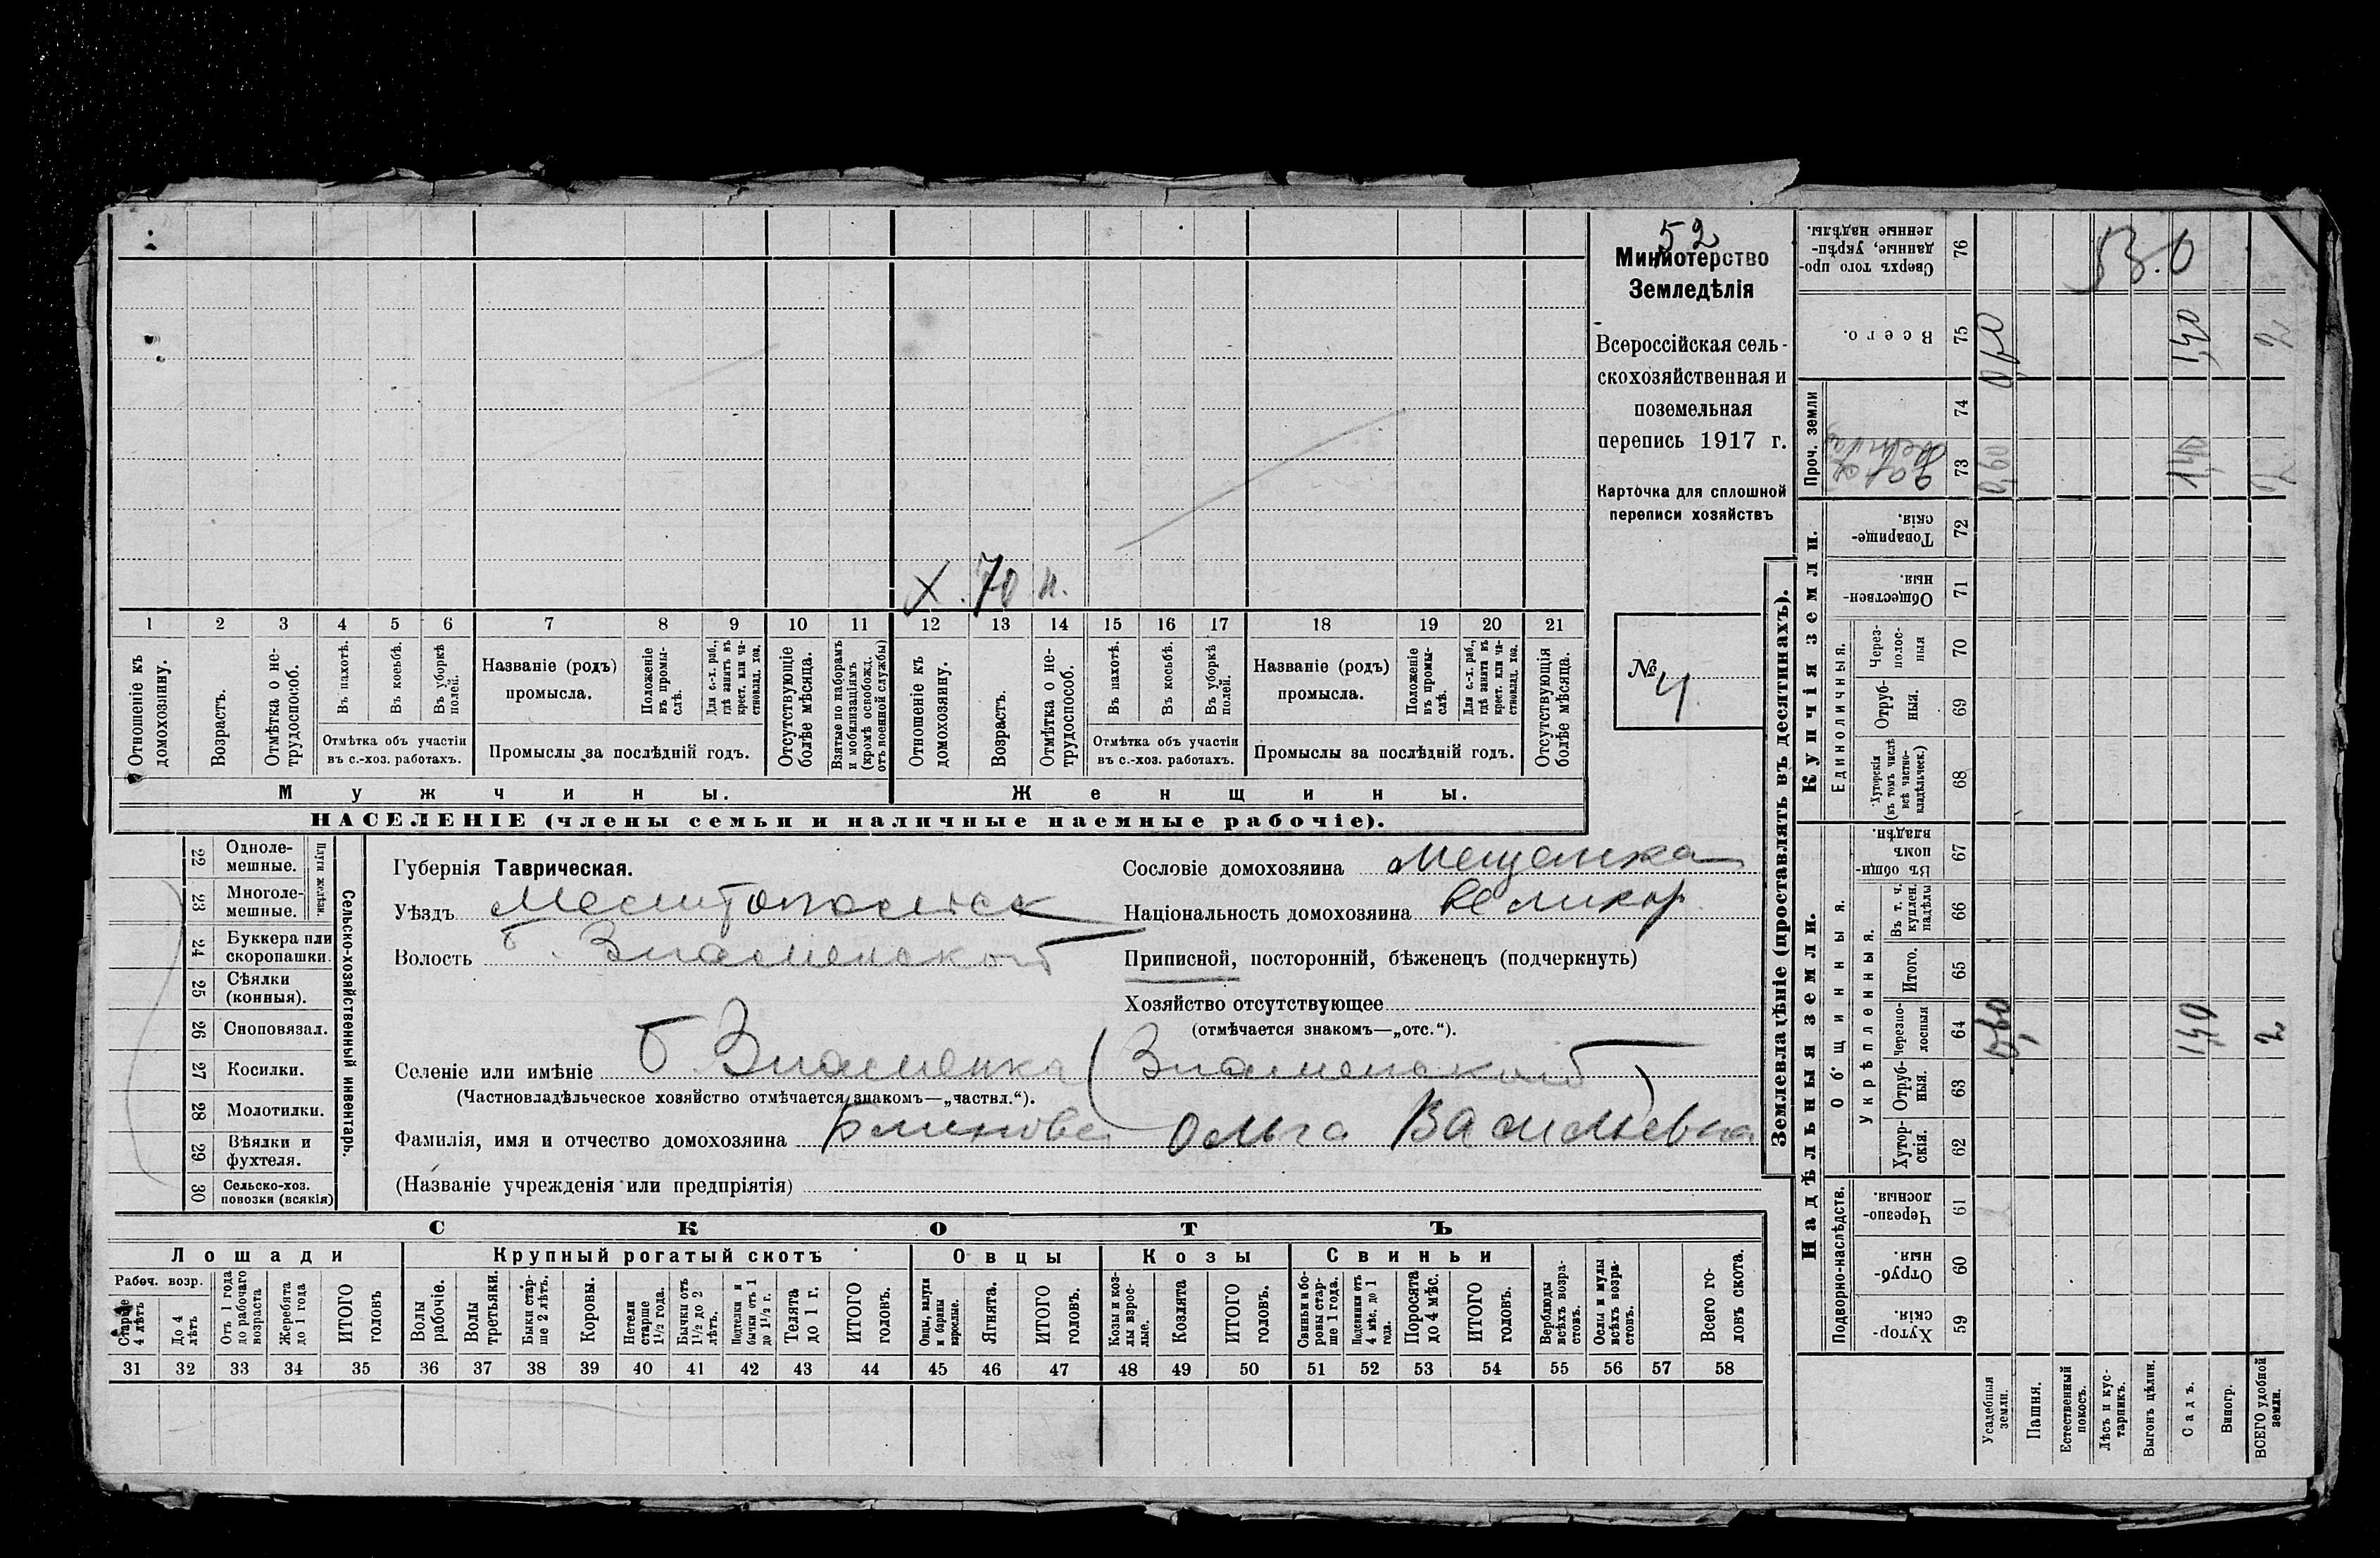 52
Министерство
Земледѣлія
Всероссійская сель-
скохозяйственная и
поземельная
перепись 1917 г.
Карточка для сплошной
переписи хозяйствъ
№ 4
X. 70 н.
1 2 3 4 5 6 7 8 9 10 11 12 13 14 15 16 17 18 19 20 21
Отношеніе къ домохозяину.
Возрастъ.
Отмѣтка о не-трудоспособ.
Въ пахотѣ.
Въ косьбѣ.
Въ уборкѣ полей.
Отмѣтка объ участіи
въ с.-хоз. работахъ.
Названіе (родъ)
промысла.
Положеніе въ промы-слѣ.
Для с.-х. раб., гдѣ занятъ въ крест. или ча-стновлад. хоз.
Промыслы за послѣдній годъ.
Отсутствующіе болѣе мѣсяца.
Взятые по наборамъ и мобилизаціямъ (кромѣ освобожд. отъ военной службы)
Отношеніе къ домохозяину.
Возрастъ.
Отмѣтка о не-трудоспособ.
Въ пахотѣ.
Въ косьбѣ.
Въ уборкѣ полей.
Отмѣтка объ участіи
въ с.-хоз. работахъ.
Названіе (родъ)
промысла.
Положеніе въ промы-слѣ.
Для с.-х. раб., гдѣ занята въ крест. или ча-стновлад. хоз.
Промыслы за послѣдній годъ.
Отсутствующія болѣе мѣсяца.
Мужчины.
Женщины.
НАСЕЛЕНІЕ (члены семьи и наличные наемные рабочіе).
22 Одноле-мешные.
23 Многоле-мешные.
Плуги желѣзн.
24 Буккера или скоропашки.
25 Сѣялки (конныя).
26 Сноповязал.
27 Косилки.
28 Молотилки.
29 Вѣялки и фухтеля.
30 Сельско-хоз. повозки (всякія)
Сельско-хозяйственный инвентарь.
Губернія Таврическая.
Уѣздъ Мелитопольск
Волость б. Знаменской
Сословіе домохозяина Мещанка
Національность домохозяина великор
Приписной, посторонній, бѣженецъ (подчеркнуть)
Хозяйство отсутствующее
(отмѣчается знакомъ—„отс.“).
Селеніе или имѣніе б Знаменка (Знаменской)
(Частновладѣльческое хозяйство отмѣчается знакомъ—„частвл.“).
Фамилія, имя и отчество домохозяина Блинова Ольга Васильевна
(Названіе учрежденія или предпріятія)
СКОТЪ
Лошади
Крупный рогатый скотъ
Овцы
Козы
Свиньи
Рабоч. возр.
Старше 4 лѣтъ
До 4 лѣтъ
Отъ 1 года до рабочаго возраста
Жеребята до 1 года
ИТОГО головъ
Волы рабочіе.
Волы третьяки.
Быки стар-ше 2 лѣтъ.
Коровы.
Нетели старше 1½ года.
Бычки отъ 1½ до 2 лѣтъ.
Подтелки и бычки отъ 1 до 1½ г.
Телята до 1 г.
ИТОГО головъ.
Овцы, валухи и бараны взрослые.
Ягнята.
ИТОГО головъ.
Козы и коз-лы взрос-лые.
Козлята
ИТОГО головъ.
Свиньи и бо-ровы стар-ше 1 года.
Подсвинки отъ 4 мѣс. до 1 года.
Поросята до 4 мѣс.
ИТОГО головъ.
Верблюды всѣхъ возра-стовъ.
Ослы и мулы всѣхъ возра-стовъ.
Всего го-ловъ скота.
31 32 33 34 35 36 37 38 39 40 41 42 43 44 45 46 47 48 49 50 51 52 53 54 55 56 57 58
Землевладѣніе (проставлять въ десятинахъ).
Надѣльныя земли.
Купчія земли.
Проч. земли
Подворно-наслѣдств.
Общинныя.
Укрѣпленныя.
Единоличныя.
Сверхъ того про-данные, укрѣп-ленные надѣлы. 76
Всего. 75
74
73
Товарище-скія. 72
Обществен-ныя. 71
Через-полос-ныя 70
Отруб-ныя. 69
Хуторскія (въ томъ числѣ всѣ частно-владѣльческ.) 68
Въ общин-номъ владѣн. 67
Въ т. ч. куплен. надѣлы 66
Итого. 65
Черезпо-лосныя 64
Отруб-ныя. 63
Хутор-скія. 62
Черезпо-лосныя. 61
Отруб-ныя. 60
Хутор-скія. 59
Усадебныя земли.
Пашня.
Естественный покосъ.
Лѣсъ и кус-тарникъ.
Выгонъ цѣлин.
Садъ.
Виногр.
ВСЕГО удобной земли.
53.0
0,60 1,40 2
0,60 1,40 2
0,60 1,40 2